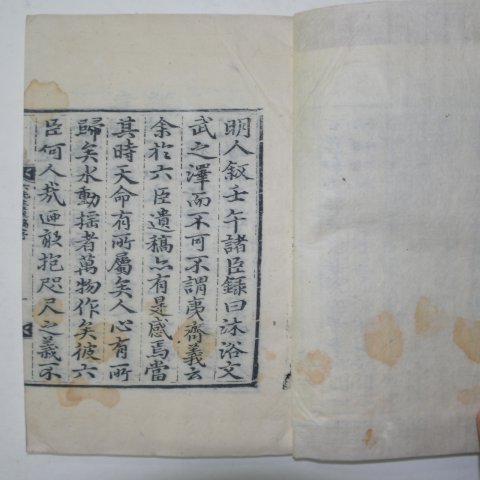 明人叙壬午諸臣録曰沐浴文
武之澤而不可不謂夷齊義云
余於六臣遺稿亦有是感焉當
其時天命有所屬矣人心有所
歸矣水動揺者萬物作矣彼六
臣何人哉迺敢抱咫尺之義不